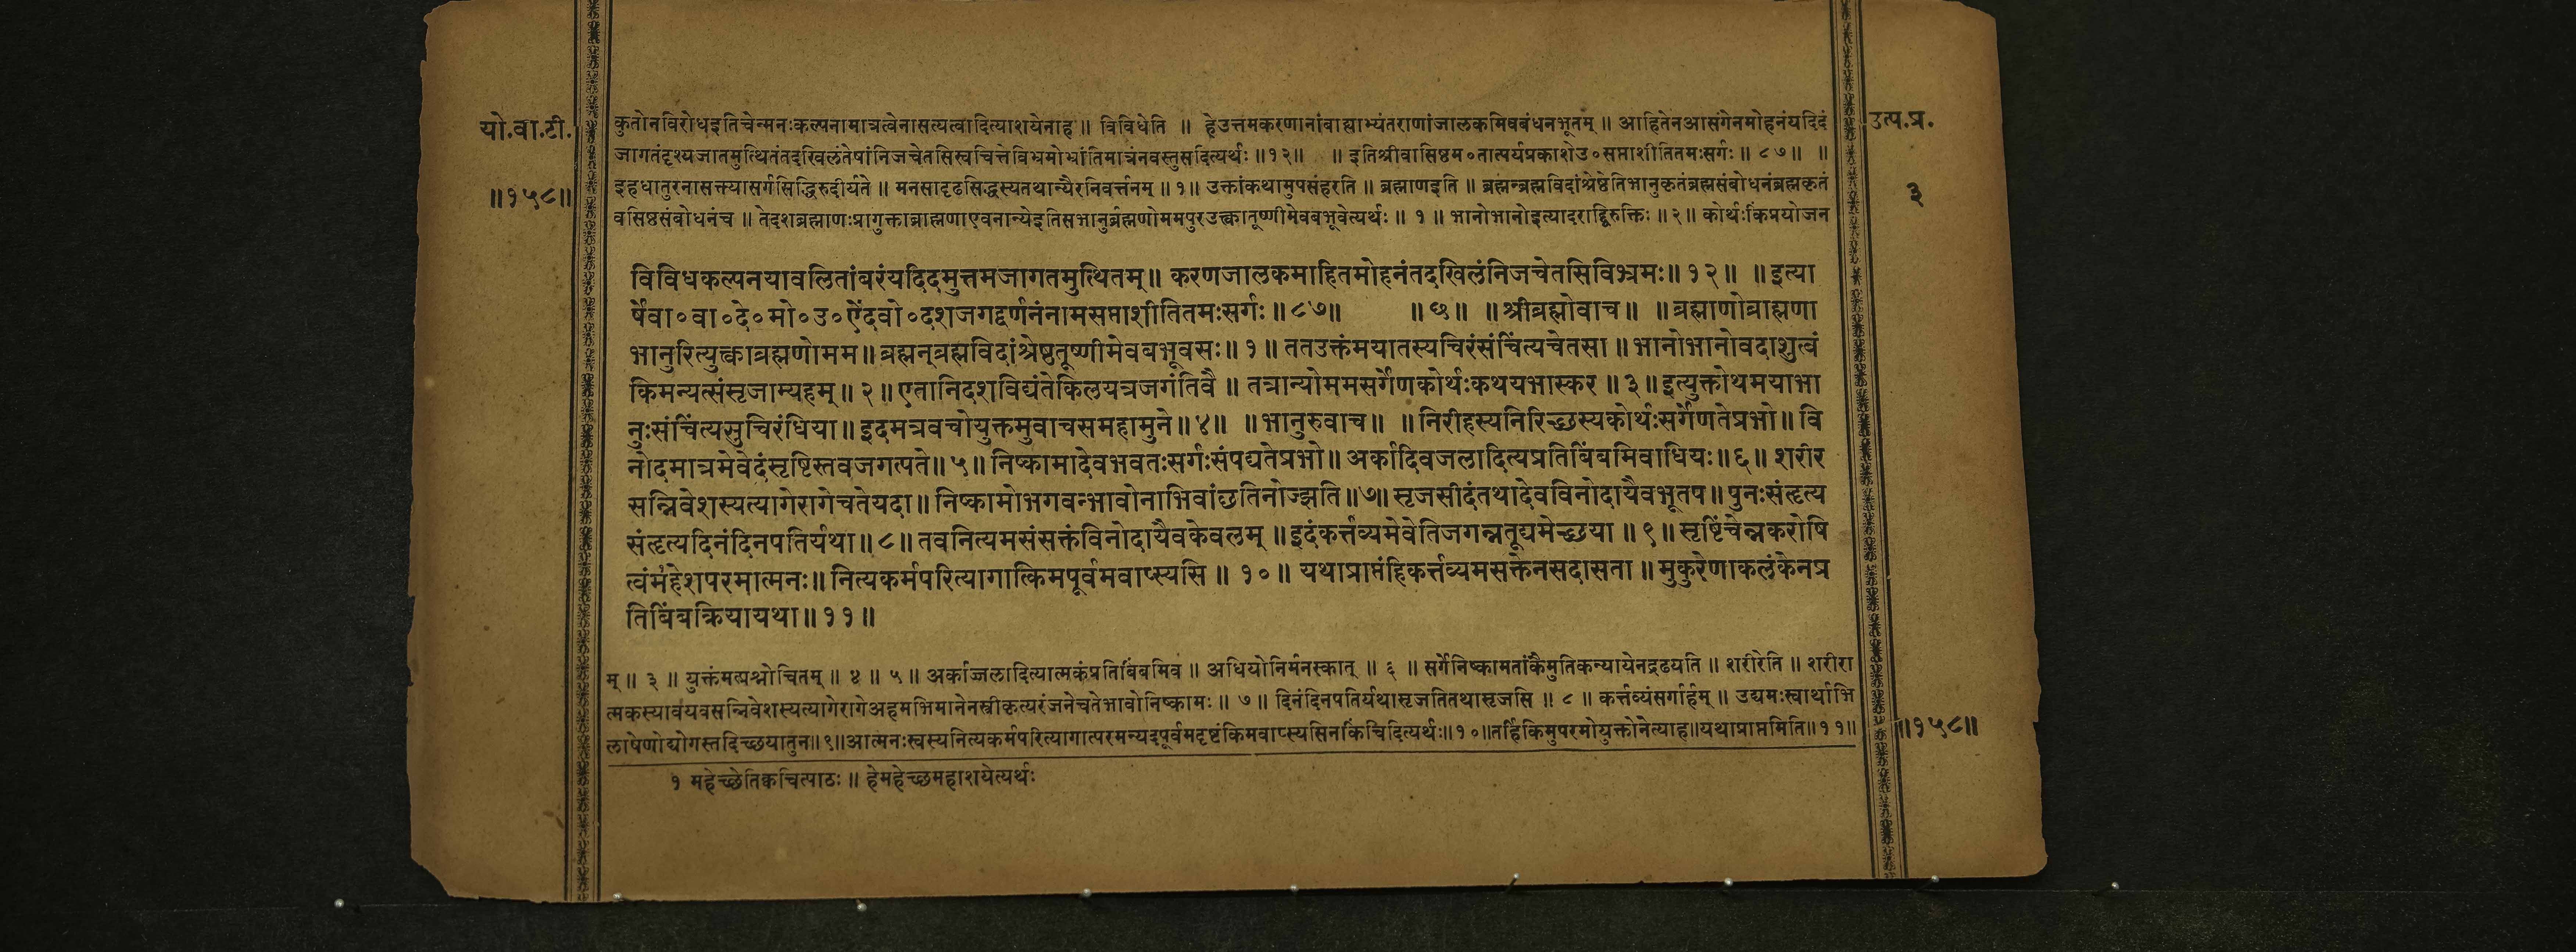 यो.वा.टी.
॥१५८॥
उत्प.प्र.
३
कुतोनविरोधइतिचेन्मनःकल्पनामात्रत्वेनासत्यत्वादित्याशयेनाह ॥ विविधेति ॥ हेउत्तमकरणानांबाह्याभ्यंतराणांजालकमिवबंधनभूतम् ॥ आहितेनआसंगेनमोहनंयदिदं
जागतंदृश्यजातमुत्थितंतदखिलंतेषांनिजचेतसिस्वचित्तेविभ्रमोभ्रांतिमात्रंनवस्तुसदित्यर्थः ॥१२॥ ॥ इतिश्रीवासिष्ठम०तात्पर्यप्रकाशेउ०सप्ताशीतितमःसर्गः ॥ ८७ ॥ ॥
इहधातुरनासक्त्यासर्गसिद्धिरुदीर्यते ॥ मनसादृढसिद्धस्यतथान्यैरनिवर्त्तनम् ॥ १॥ उक्तांकथामुपसंहरति ॥ ब्रह्माणइति ॥ ब्रह्मन्ब्रह्मविदांश्रेष्ठेतिभानुकृतंब्रह्मसंबोधनंब्रह्मकृतं
वसिष्ठसंबोधनंच ॥ तेदशब्रह्माणःप्रागुक्ताब्राह्मणाएवनान्येइतिसभानुर्ब्रह्मणोममपुरउक्त्वातूष्णीमेवबभूवेत्यर्थः ॥ १ ॥ भानोभानोइत्यादराद्द्विरुक्तिः ॥२॥ कोर्थःकिंप्रयोजन
विविधकल्पनयावलितांबरंयदिदमुत्तमजागतमुत्थितम्॥ करणजालकमाहितमोहनंतदखिलंनिजचेतसिविभ्रमः॥१२॥ ॥इत्या
र्षेवा०वा०दे०मो०उ०ऐंदवो०दशजगद्वर्णनंनामसप्ताशीतितमःसर्गः॥८७॥ ॥ छ॥ ॥श्रीब्रह्मोवाच॥ ॥ब्रह्माणोब्राह्मणा
भानुरित्युक्त्वाब्रह्मणोमम॥ब्रह्मन्ब्रह्मविदांश्रेष्ठतूष्णीमेवबभूवसः॥१॥ ततउक्तंमयातस्यचिरंसंचिंत्यचेतसा॥भानोभानोवदाशुत्वं
किमन्यत्संसृजाम्यहम्॥२॥एतानिदशविद्यंतेकिलयत्रजगंतिवै॥ तत्रान्योममसर्गेणकोर्थःकथयभास्कर॥३॥इत्युक्तोथमयाभा
नुःसंचिंत्यसुचिरंधिया॥इदमत्रवचोयुक्तमुवाचसमहामुने॥४॥ ॥भानुरुवाच॥ ॥निरीहस्यनिरिच्छस्यकोर्थःसर्गेणतेप्रभो॥वि
नोदमात्रमेवेदंसृष्टिस्तवजगत्पते॥५॥निष्कामादेवभवतःसर्गःसंपद्यतेप्रभो॥अर्कादिवजलादित्यप्रतिबिंबमिवाधियः॥६॥ शरीर
सन्निवेशस्यत्यागेरागेचतेयदा॥निष्कामोभगवन्भावोनाभिवांछतिनोज्झति॥७॥सृजसीदंतथादेवविनोदायैवभूतप॥पुनःसंत्दृत्य
संत्दृत्यदिनंदिनपतिर्यथा॥८॥तवनित्यमसंसक्तंविनोदायैवकेवलम्॥इदंकर्त्तव्यमेवेतिजगन्नतूद्यमेच्छया॥९॥सृष्टिंचेन्नकरोषि
त्वंर्महेशपरमात्मनः॥नित्यकर्मपरित्यागात्किमपूर्वमवाप्स्यसि॥ १०॥ यथाप्राप्तंहिकर्त्तव्यमसक्तेनसदासता॥मुकुरेणाकलंकेनप्र
तिबिंबक्रियायथा॥११॥
म् ॥ ३ ॥ युक्तंमत्प्रश्नोचितम् ॥ ४ ॥ ५ ॥ अर्काज्जलादित्यात्मकंप्रतिबिंबमिव ॥ अधियोनिर्मनस्कात् ॥ ६ ॥ सर्गेनिष्कामतांकैमुतिकन्यायेनद्रढयति ॥ शरीरेति ॥ शरीरा
त्मकस्यावयवसन्निवेशस्यत्यागेरागेअहमभिमानेनस्वीकृत्यरंजनेचतेभावोनिष्कामः ॥ ७ ॥ दिनंदिनपतिर्यथासृजतितथासृजसि ॥ ८ ॥ कर्त्तव्यंसर्गार्हम् ॥ उद्यमःस्वार्थाभि
लाषेणोद्योगस्तदिच्छयातुन॥९॥आत्मनःस्वस्यनित्यकर्मपरित्यागात्परमन्यदपूर्वमदृष्टंकिमवाप्स्यसिनकिंचिदित्यर्थः॥१०॥तर्हिकिमुपरमोयुक्तोनेत्याह॥यथाप्राप्तमिति॥११॥
॥१५८॥
१ महेच्छेतिक्वचित्पाठः ॥ हेमहेच्छमहाशयेत्यर्थः